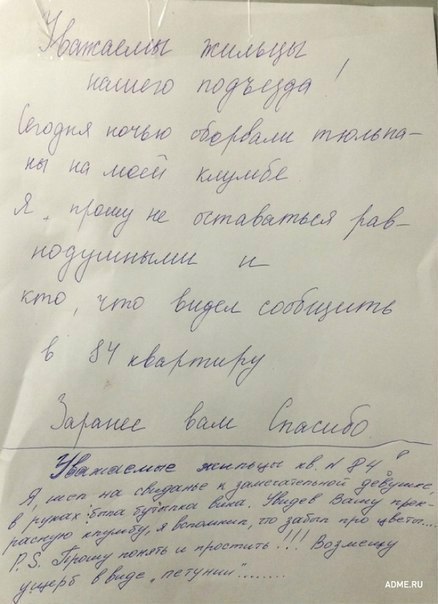 Уважаемы жильцы
нашего подъезда!
Сегодня ночью оборвали тюльпа-
ны на моей клумбе
Я, прошу не оставаться рав-
нодушными и
кто, что видел сообщить
в 84 квартиру
Заранее вам Спасибо
Уважаемые жильцы кв. N 84"
Я, шел на свиданье к замечательной девушке,
в руках была бутылка вина. Увидев Вашу прек-
расную клумбу, я вспомнил, что забыл про цветы....
P.S. Прошу понять и простить!!! Возмещу
ущерб в виде „петунии"........
ADME.RU